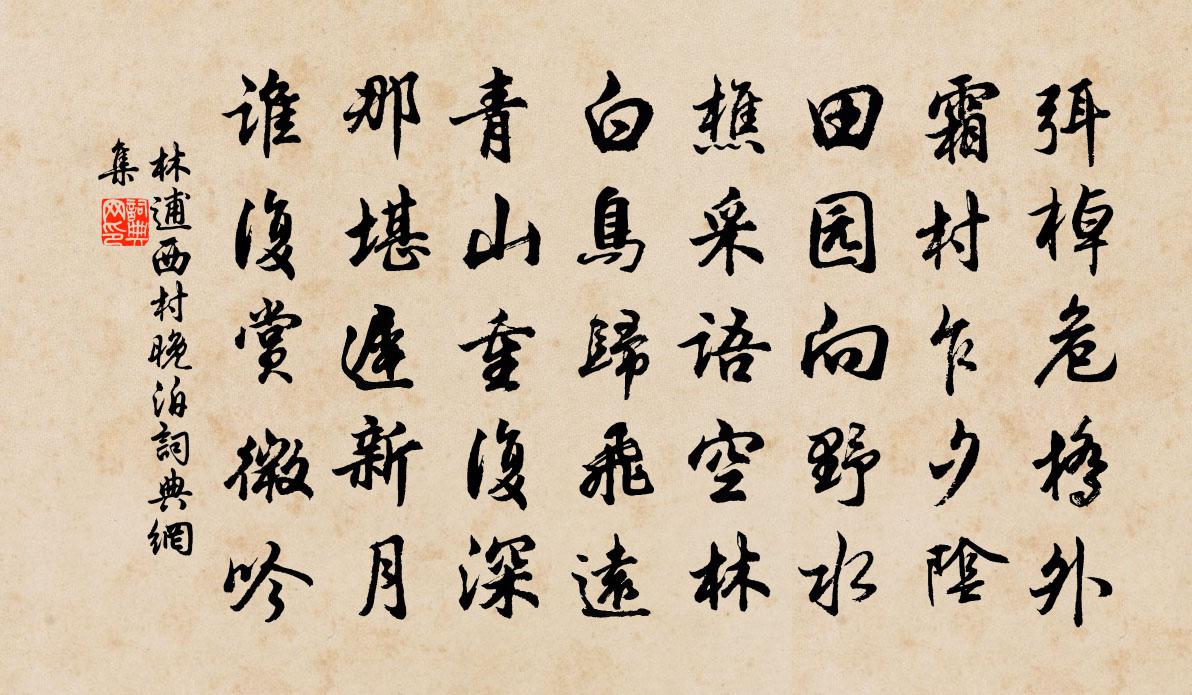 弭棹危橋外
霜村乍夕陰
田园向野水
樵采語空林
白鳥歸飛遠
青山重復深
那堪遲新月
誰復賞微吟
林逋西村晚泊詞典網
集
詞典
网印